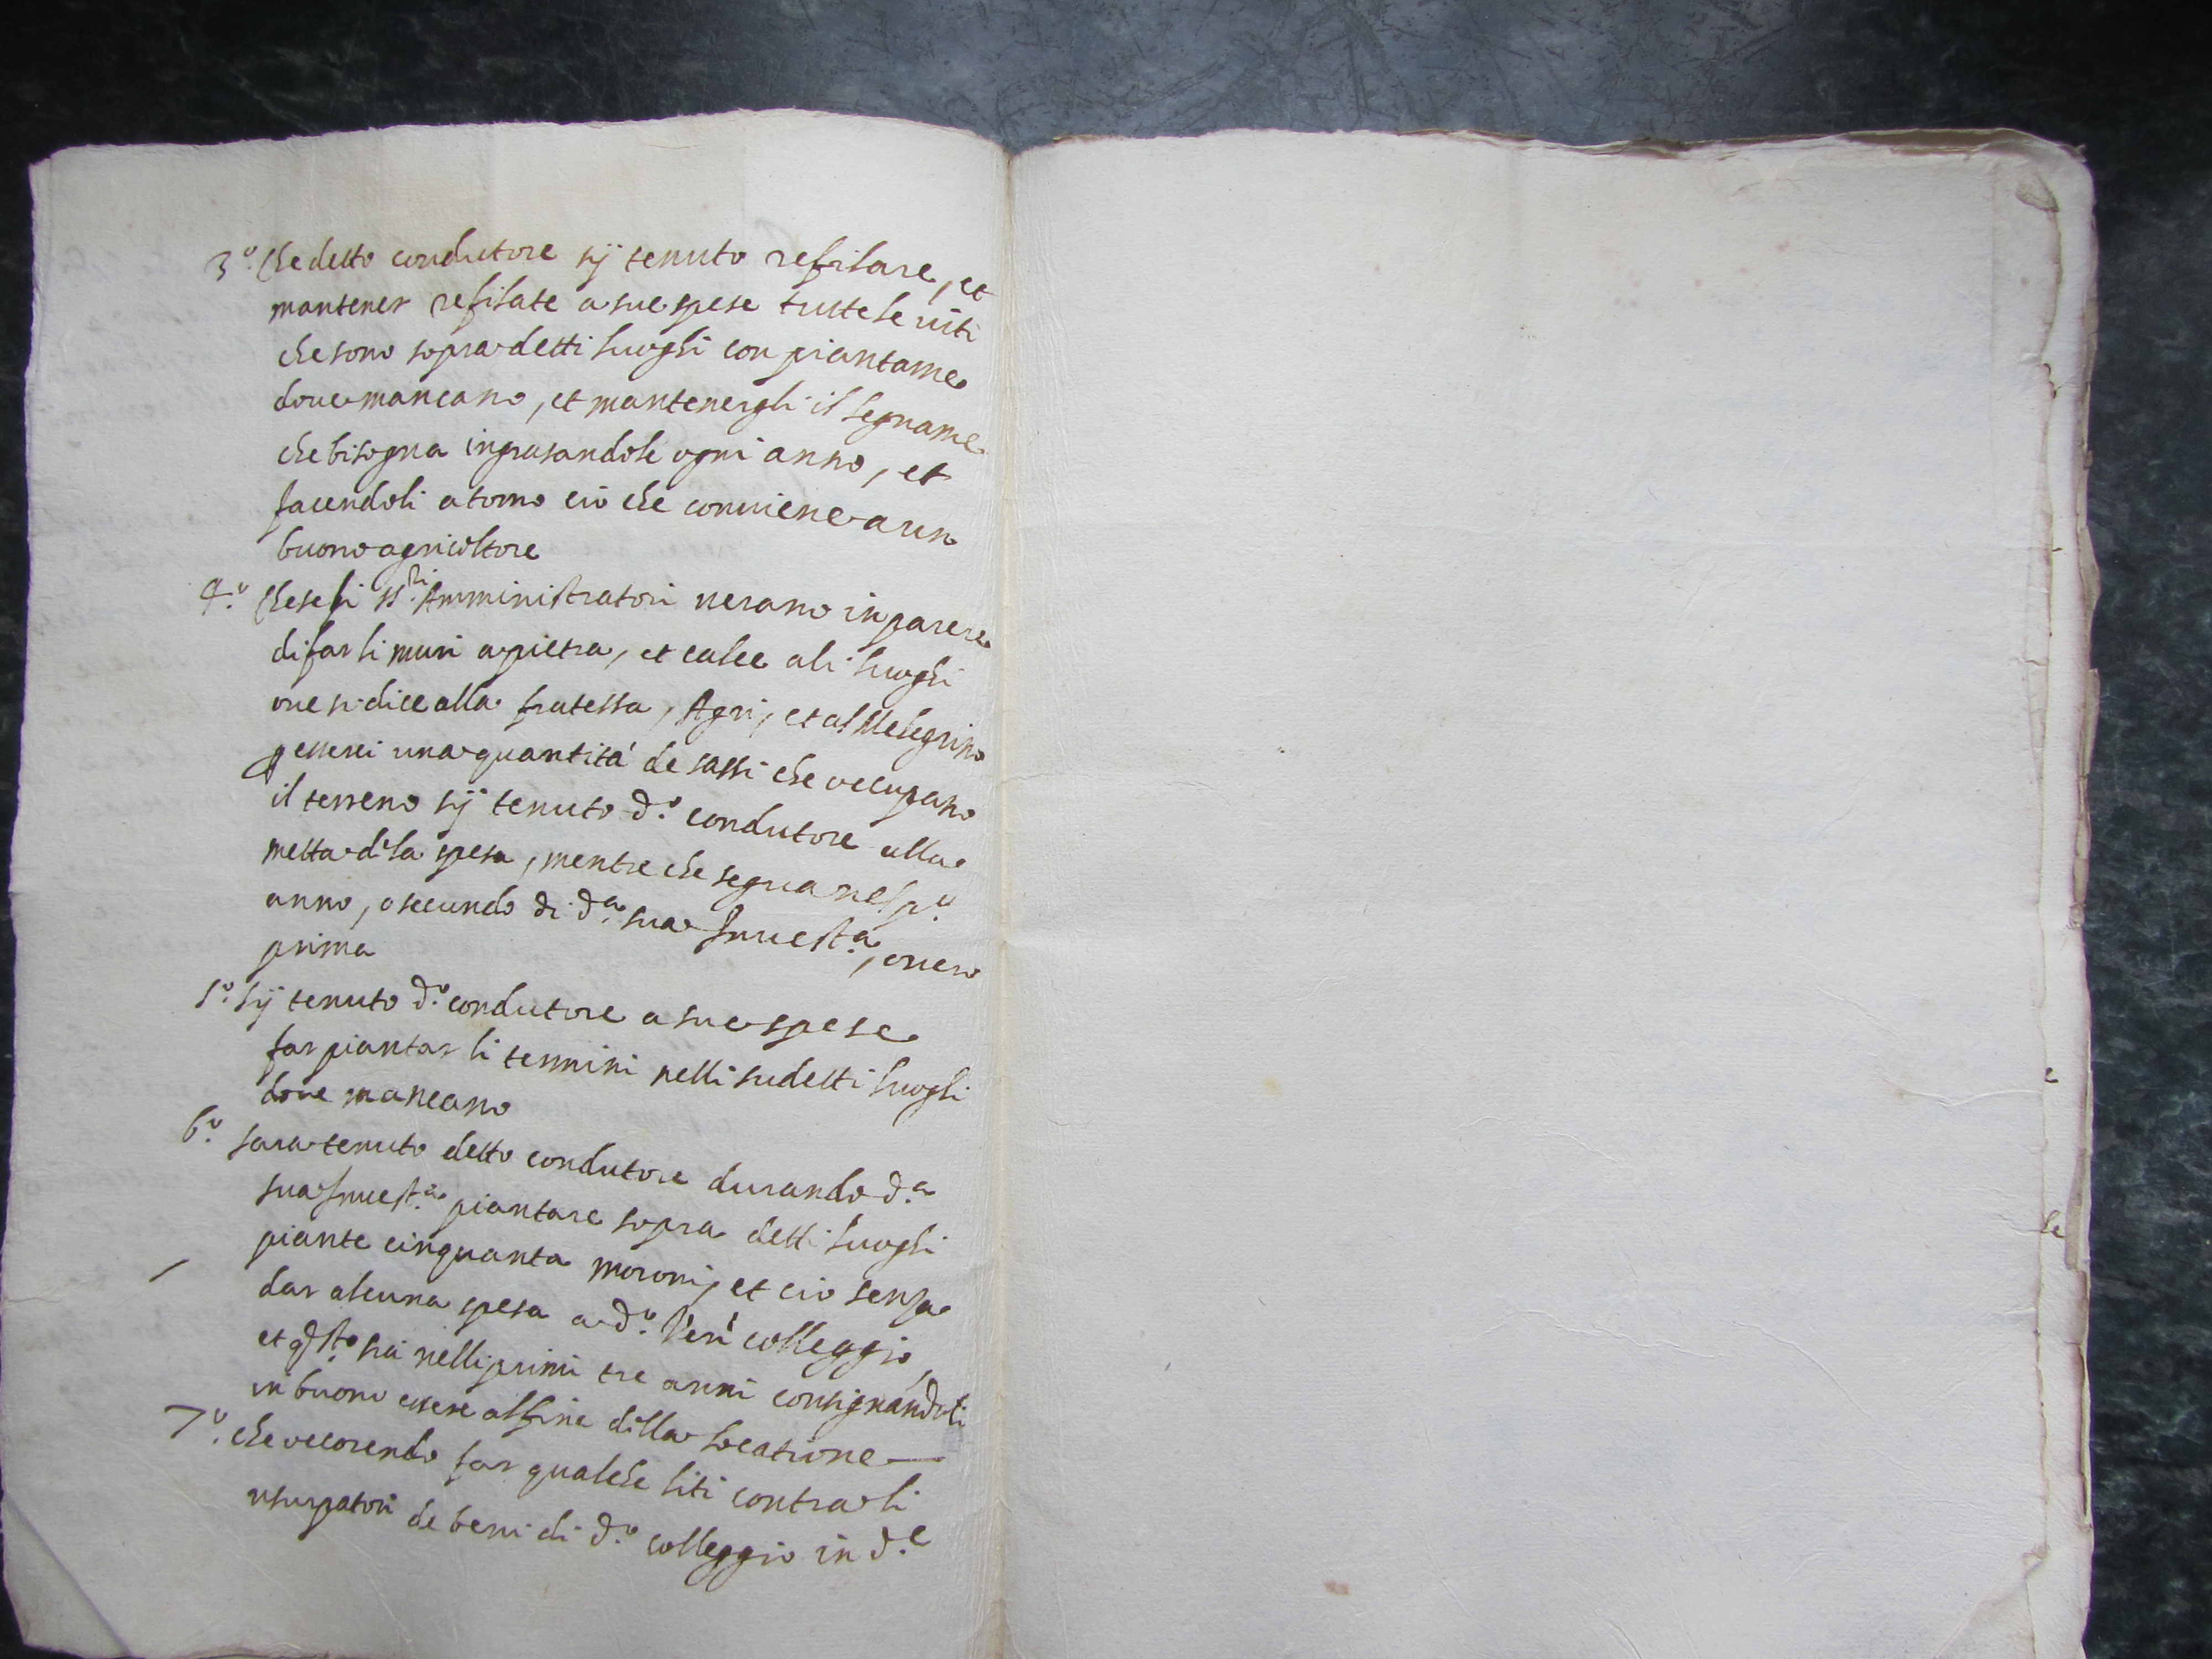 3.º Che detto condutore sij tenuto refilare, et
mantener refilate a sue spese tutte le uiti
che sono sopra detti luoghi con piantame
doue mancano, et mantenergli il legname
che bisogna ingrasandole ogni anno, et
facendoli atorno ciò che conuiene a un
buono agricoltore
4.º Che se li SS.ri Amministratori uerano in parere
di far li muri a pietra, et calce ali luoghi
oue si dice alla fratessa, Agri, et al Melegrino
p esserci una quantità de sassi che occupano
il terreno sij tenuto d.º condutore alla
metta di la spesa, mentre che segua nel p.º
anno, o secundo di d.ª sua Inuest.ª, ouero
prima
5.º Sij tenuto d.º condutore a sue spese
far piantar li termini nelli sudetti luoghi
doue mancano
6.º Sara tenuto detto condutore durando d.ª
sua Inuest.ª piantare sopra detti luoghi
piante cinquanta moroni, et ciò senza
dar alcuna spesa a d.º Ven colleggio,
et q.sto sia nelli primi tre anni consignandoli
in buono essere al fine dilla locatione —
7.º che occorendo far qualche liti contra li
usurpatori de beni di d.º colleggio in d.e